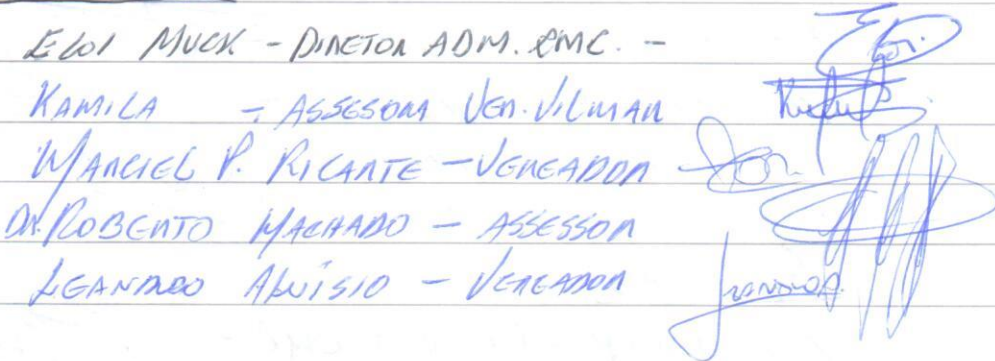 ELOI MUCK - DIRETOR ADM. CMC. - Eloi.
KAMILA - ASSESSORA VER. VILMAR
MARCIEL P. RICARTE - VEREADOR
DR. ROBERTO MACHADO - ASSESSOR
LEANDRO ALUÍSIO - VEREADOR Leandro A.